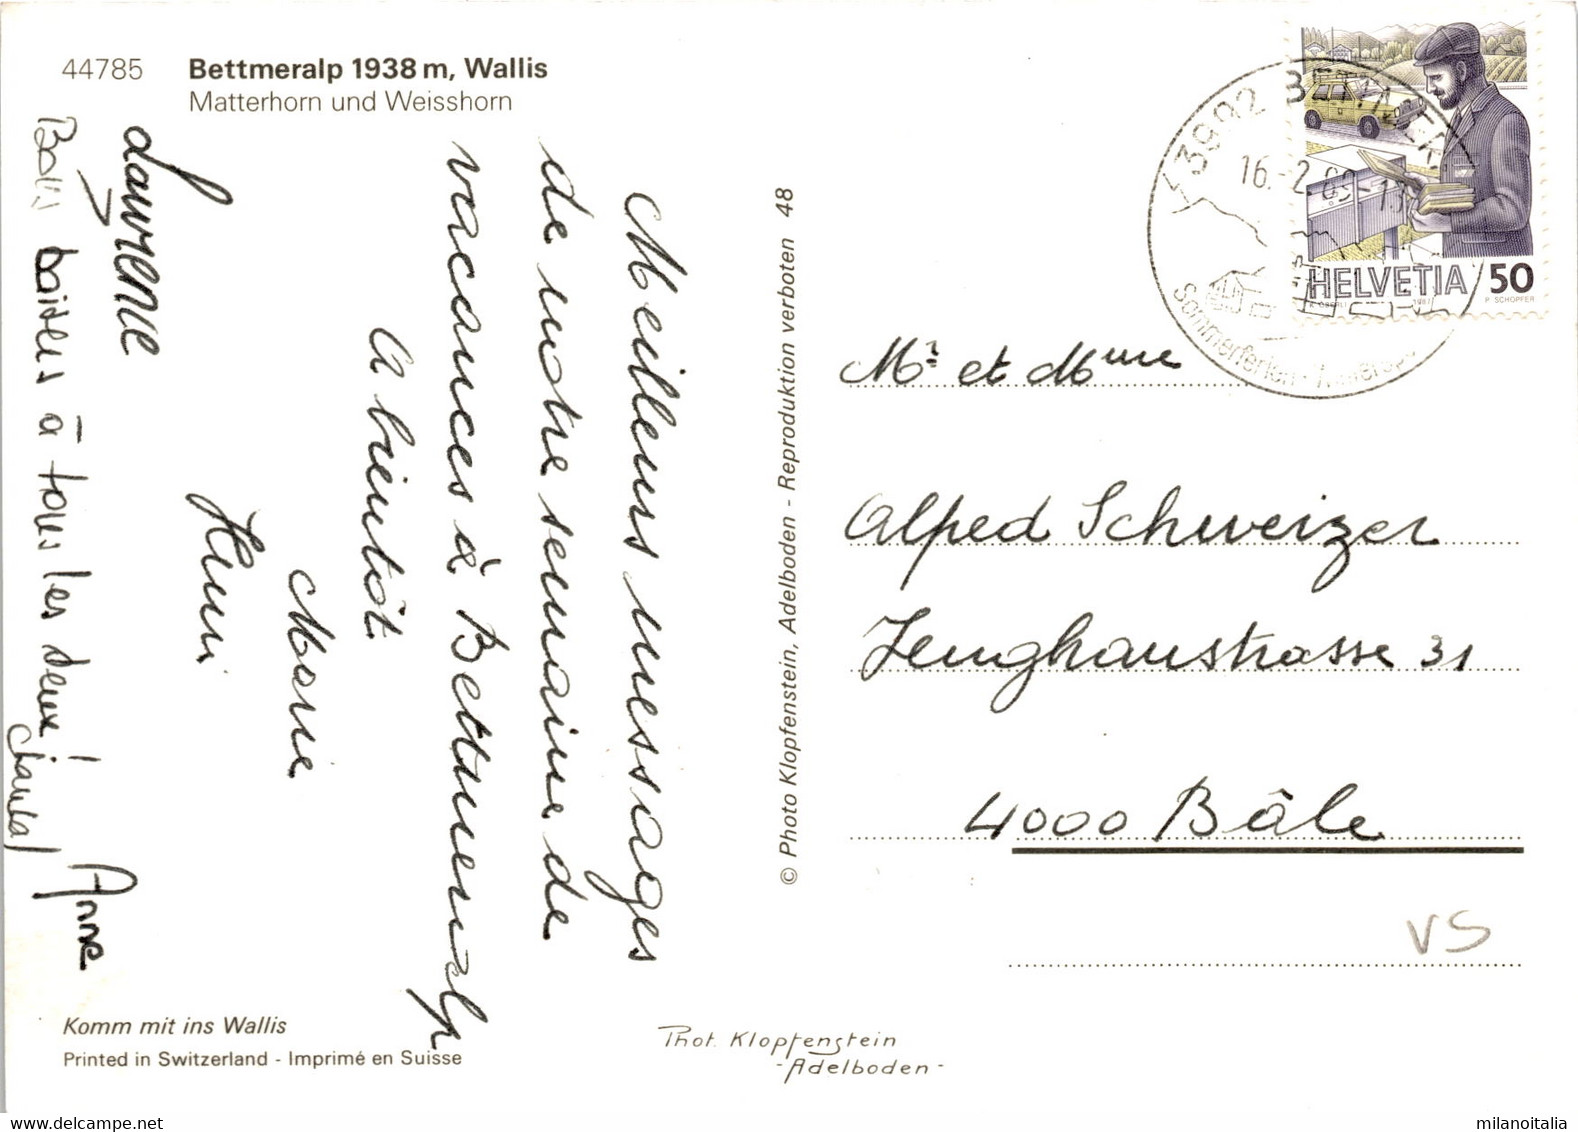 44785 Bettmeralp 1938 m, Wallis
Matterhorn und Weisshorn
Meilleurs messages
de notre semaine de
vacances à Bettmeralp
A bientôt
Marie
Henri
Laurence
Bons baisers à tous les deux!
Chantal
Anne
Komm mit ins Wallis
Printed in Switzerland - Imprimé en Suisse
© Photo Klopfenstein, Adelboden - Reproduktion verboten 48
Phot. Klopfenstein
-Adelboden-
3992 BETTMERALP
16.-2.89-
Sommerferien-
HELVETIA 50
1987 P. SCHOPFER
Mr et Mme
Alfred Schweizer
Zeughausstrasse 31
4000 Bâle
VS
milanoitalia